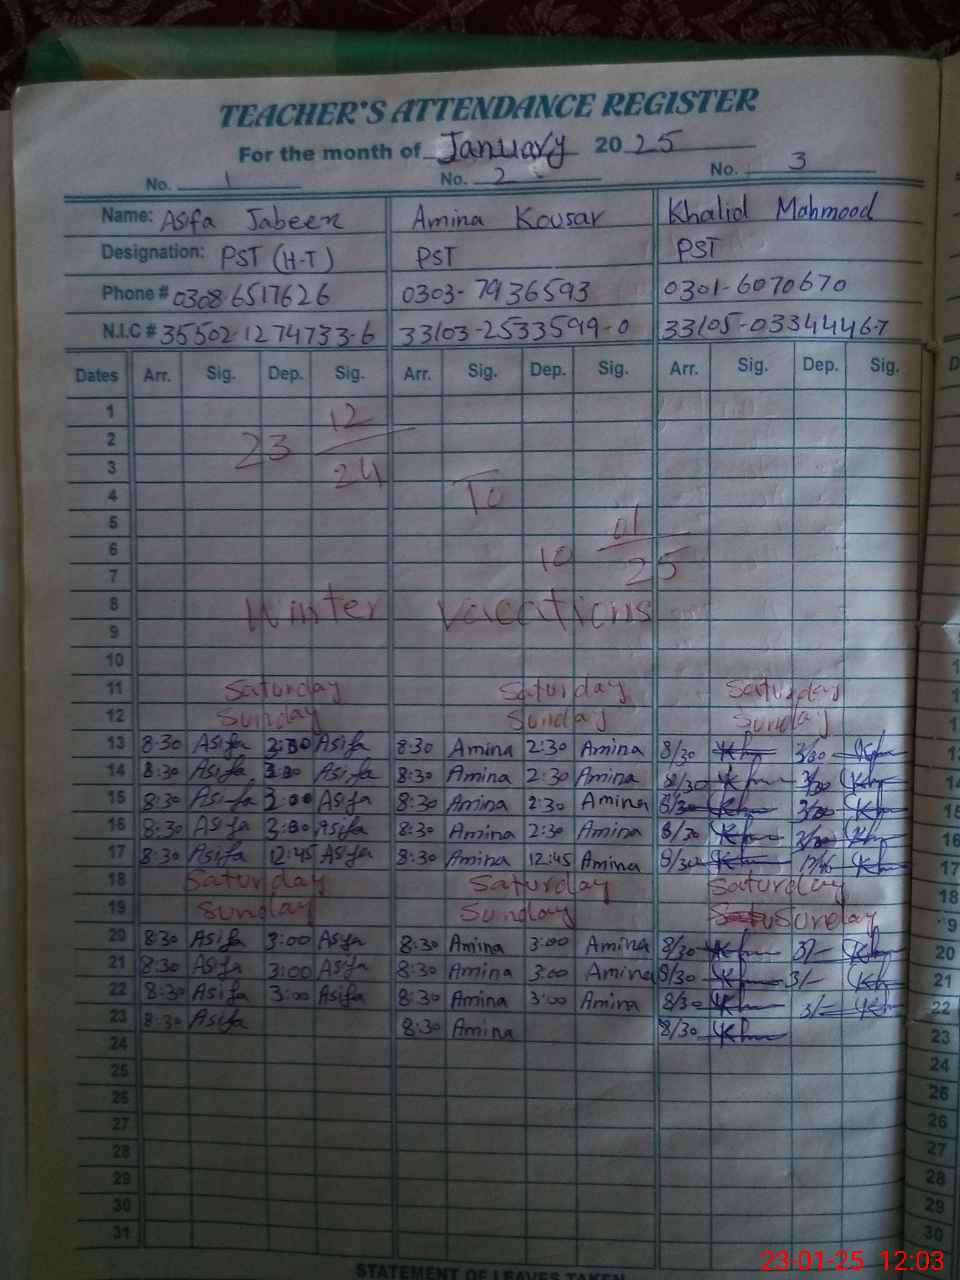 TEACHER'S ATTENDANCE REGISTER
For the month of January 2025
No. 1 No. 2 No. 3
Name: Asifa Jabeen Amina Kousar Khalid Mahmood
Designation: PST (H-T) PST PST
Phone # 0308 6517626 0303-7936593 0301-6070670
N.I.C # 35502-1274733-6 33103-2533599-0 33105-0334446-7
Dates Arr. Sig. Dep. Sig. Arr. Sig. Dep. Sig. Arr. Sig. Dep. Sig.
1 12
2 23
3 24
4 10
5 01
6 10
7 25
8 Winter vacations
9
10
11 Saturday Saturday Saturday
12 Sunday Sunday Sunday
13 8:30 Asifa 2:30 Asifa 8:30 Amina 2:30 Amina 8/30
14 8:30 Asifa Asifa 8:30 Amina 2:30 Amina 8/30
15 8:30 Asifa Asifa 8:30 Amina 2:30 Amina 8/30
16 8:30 Asifa Asifa 8:30 Amina 2:30 Amina 8/30
17 8:30 Asifa 12:45 Asifa 8:30 Amina 12:45 Amina 8/30
18 Saturday Saturday Saturday
19 Sunday Sunday Sunday
20 8:30 Asifa 3:00 Asifa 8:30 Amina 3:00 Amina 8/30 3/-
21 8:30 Asifa 3:00 Asifa 8:30 Amina 3:00 Amina 8/30 3/-
22 8:30 Asifa 3:00 Asifa 8:30 Amina 3:00 Amina 8/30 3/-
23 8:30 Asifa 8:30 Amina 8/30
24
25
26
27
28
29
30
31
STATEMENT OF LEAVES TAKEN
23-01-25 12:03